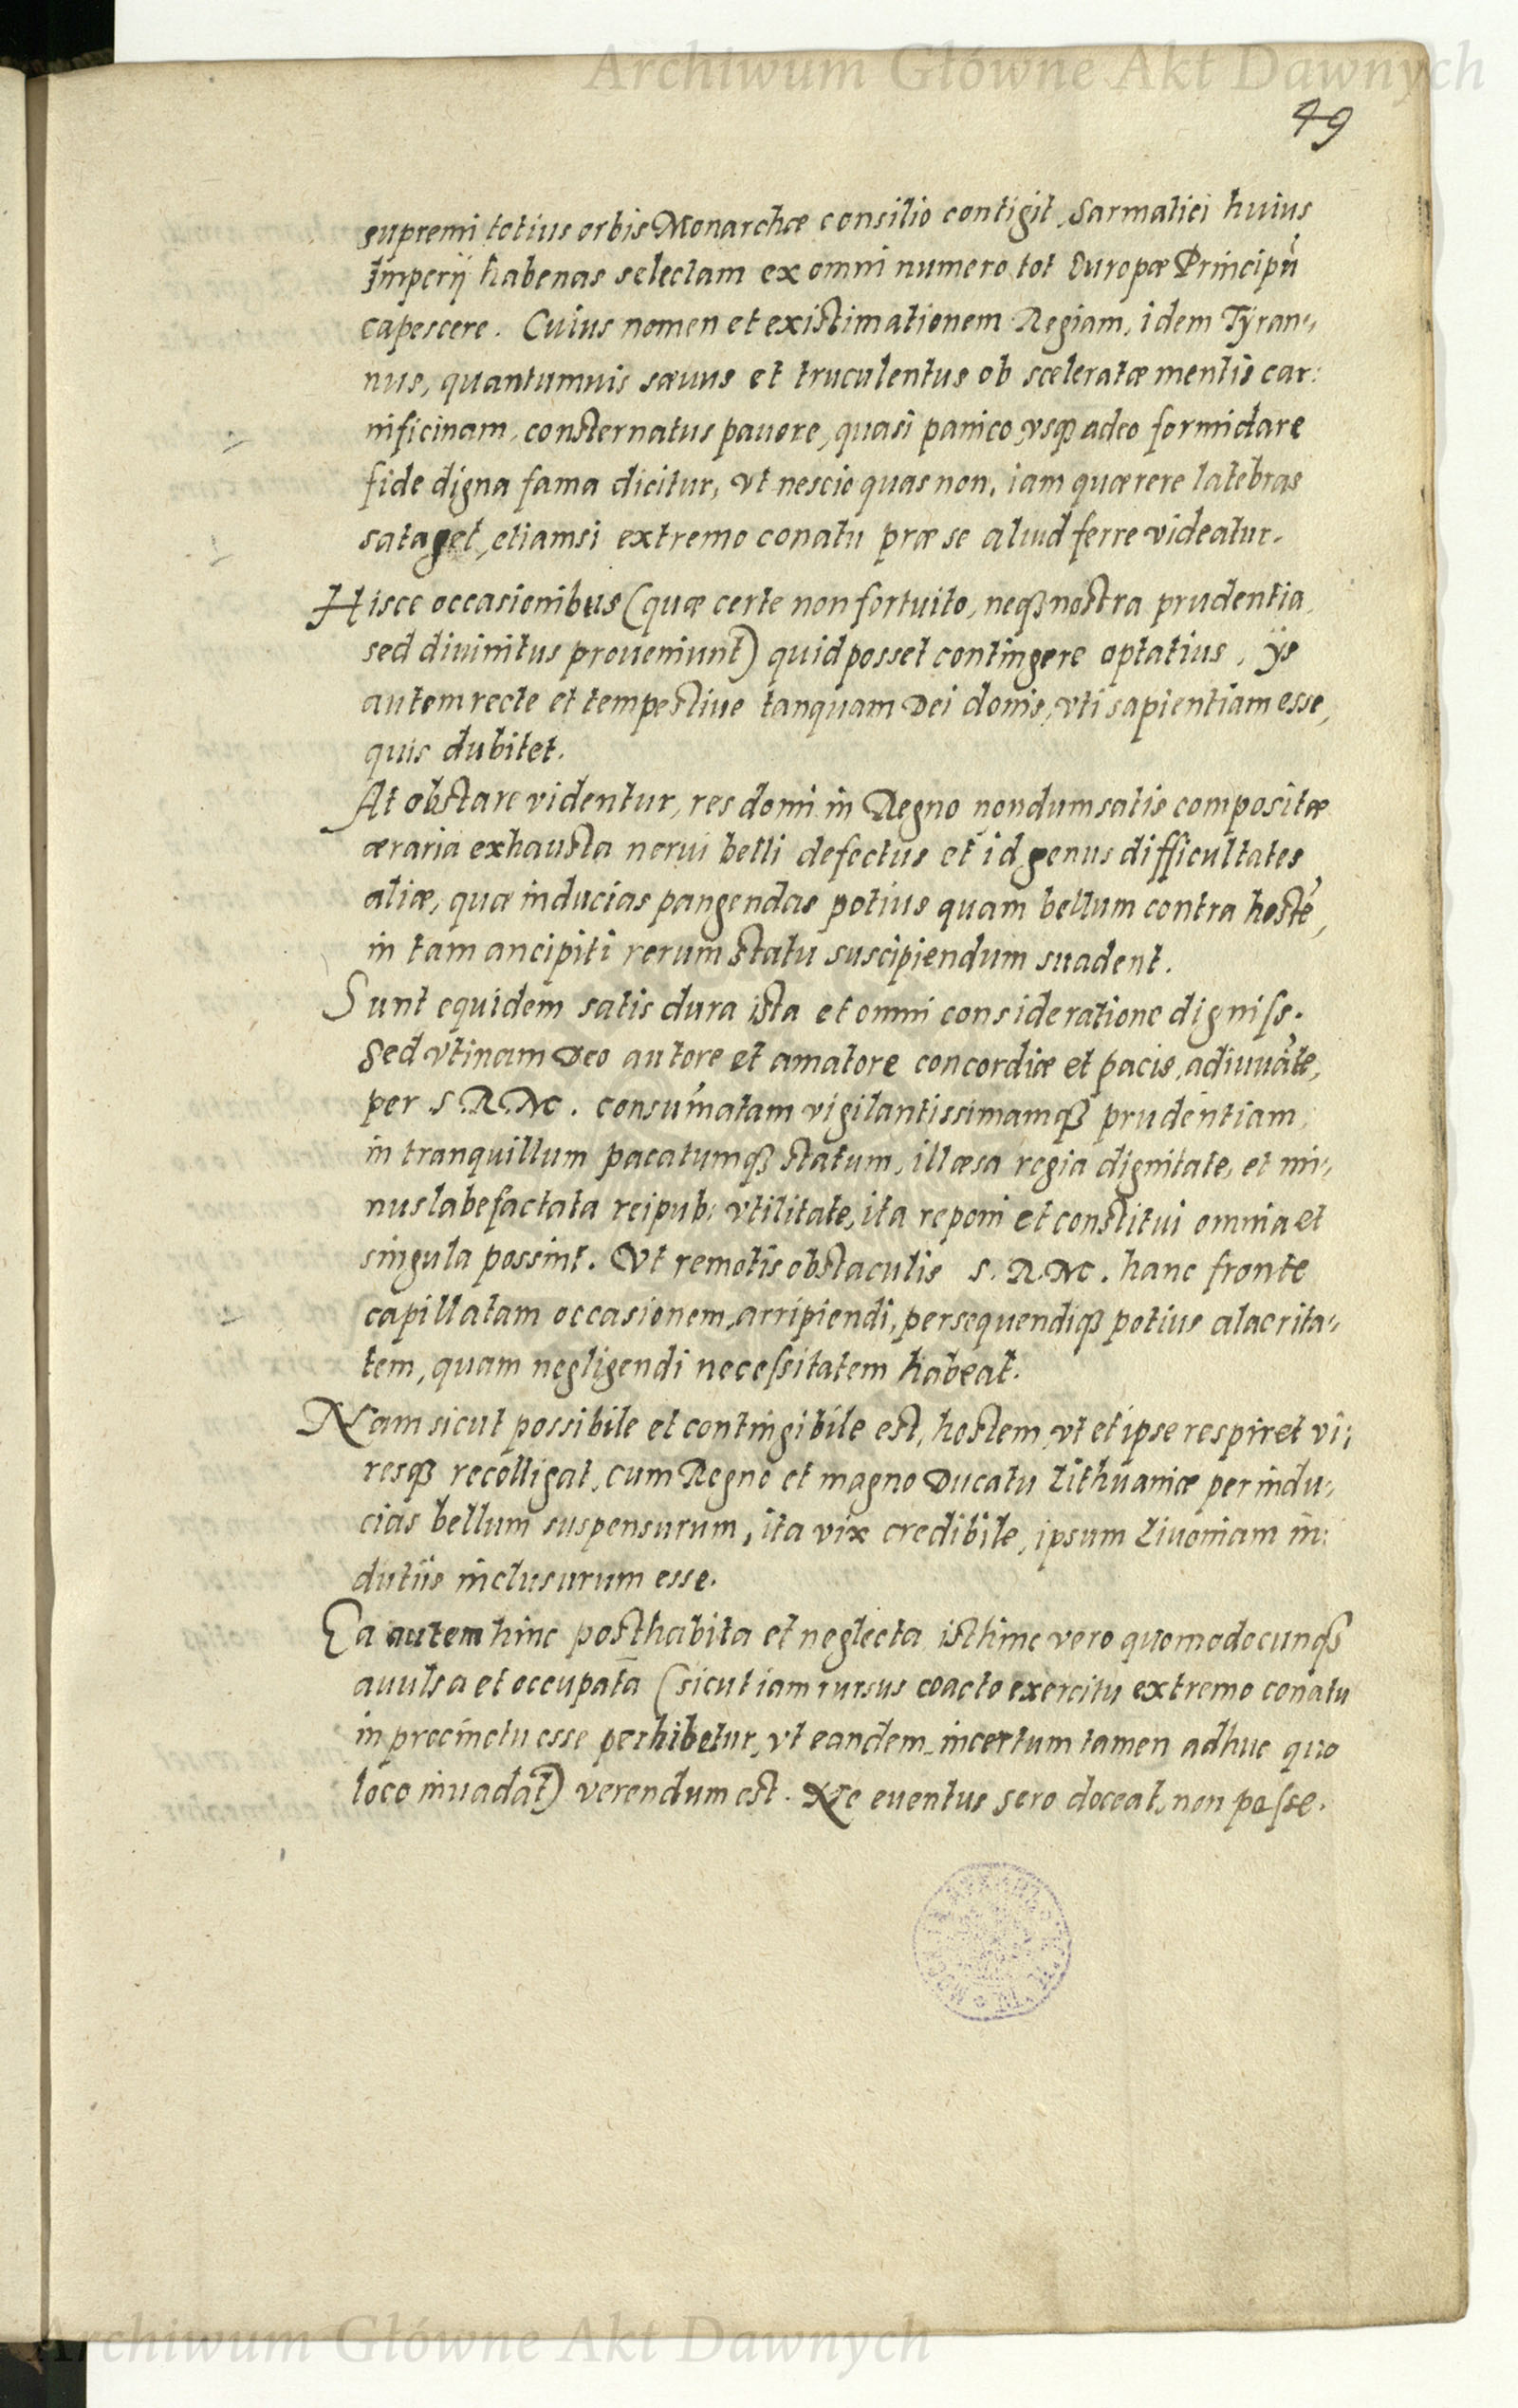 Archiwum Główne Akt Dawnych
49
supremi totius orbis Monarchæ consilio contigit, Sarmatici huius
Imperij habenas selectam ex omni numero tot Europæ Principũ
capescere. Cuius nomen et existimationem Regiam, idem Tÿran„
nus, quantumuis sæuus et truculentus ob sceleratæ mentis car:
nificinam, consternatus pauore, quasi panico, vsqꝫ adeo formidare
fide digna fama dicitur, vt nescio quas non, iam quærere latebras
sataget, etiamsi extremo conatu præ se aliud ferre videatur.
Hisce occasionibus (quæ certe non fortuito, neqꝫ nostra prudentia,
sed diuinitus proueniunt) quid posset contingere optatius, ÿs
autem recte et tempestiue tanquam Dei donis, vti sapientiam esse,
quis dubitet.
At obstare videntur, res domi in Regno nondum satis compositæ
æraria exhausta nerui belli defectus et id genus difficultates
aliæ, quæ inducias pangendas potius quam bellum contra hostẽ,
in tam ancipiti rerum statu suscipiendum suadent.
Sunt equidem satis dura ista et omni consideratione digniss.
Sed vtinam Deo autore et amatore concordiæ et pacis, adiuuãte,
per S.R.M. consũmatam vigilantissimamqꝫ prudentiam,
in tranquillum pacatumqꝫ statum, illæsa regia dignitate, et mi„
nus labefactata reipub: vtilitate, ita reponi et constitui omnia et
singula possint. Vt remotis obstaculis S.R.M. hanc fronte
capillatam occasionem, arripiendi, persequendiqꝫ potius alacrita„
tem, quam negligendi necessitatem habeat.
Nam sicut possibile et contingibile est, hostem, vt et ipse respiret vi:
resqꝫ recolligat, cum Regno et magno Ducatu Lithuaniæ per indu„
cias bellum suspensurum, ita vix credibile, ipsum Liuoniam in:
dutiis inclusurum esse.
Ea autem hinc posthabita et neglecta, isthinc vero quomodocunqꝫ
auulsa et occupata (sicut iam rursus coacto exercitu extremo conatu
in procinctu esse perhibetur, vt eandem, incertum tamen adhuc quo
loco inuadat) verendum est. Ne euentus sero doceat, non posse.
Archiwum Główne Akt Dawnych